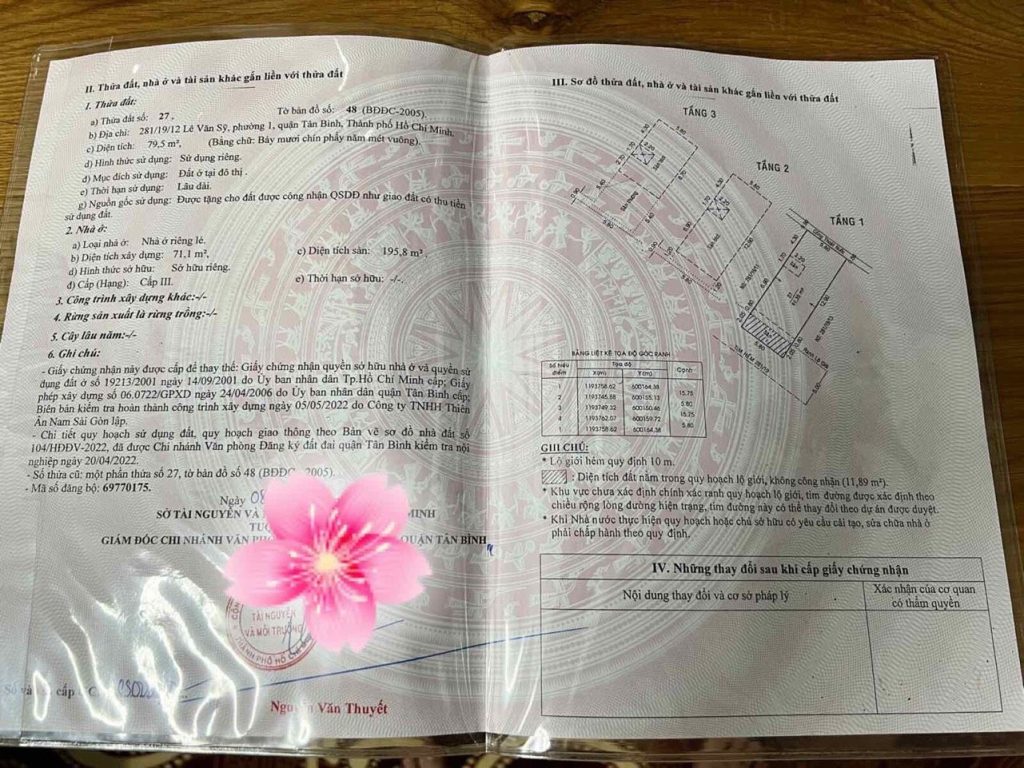 II. Thửa đất, nhà ở và tài sản khác gắn liền với thửa đất
1. Thửa đất:
a) Thửa đất số: 27. Tờ bản đồ số: 48 (BĐĐC-2005).
b) Địa chỉ: 281/19/12 Lê Văn Sỹ, phường 1, quận Tân Bình, Thành phố Hồ Chí Minh.
c) Diện tích: 79,5 m², (Bằng chữ: Bảy mươi chín phẩy năm mét vuông).
d) Hình thức sử dụng: Sử dụng riêng.
đ) Mục đích sử dụng: Đất ở tại đô thị.
e) Thời hạn sử dụng: Lâu dài.
g) Nguồn gốc sử dụng: Được tặng cho đất được công nhận QSDĐ như giao đất có thu tiền
sử dụng đất.
2. Nhà ở:
a) Loại nhà ở: Nhà ở riêng lẻ.
b) Diện tích xây dựng: 71,1 m², c) Diện tích sàn: 195,8 m².
d) Hình thức sở hữu: Sở hữu riêng.
đ) Cấp (Hạng): Cấp III. e) Thời hạn sở hữu: -/-.
3. Công trình xây dựng khác:-/-
4. Rừng sản xuất là rừng trồng:-/-
5. Cây lâu năm:-/-
6. Ghi chú:
- Giấy chứng nhận này được cấp để thay thế: Giấy chứng nhận quyền sở hữu nhà ở và quyền sử
dụng đất ở số 19213/2001 ngày 14/09/2001 do Ủy ban nhân dân Tp.Hồ Chí Minh cấp; Giấy
phép xây dựng số 06.0722/GPXD ngày 24/04/2006 do Ủy ban nhân dân quận Tân Bình cấp;
Biên bản kiểm tra hoàn thành công trình xây dựng ngày 05/05/2022 do Công ty TNHH Thiên
Ân Nam Sài Gòn lập.
- Chi tiết quy hoạch sử dụng đất, quy hoạch giao thông theo Bản vẽ sơ đồ nhà đất số
104/HĐĐV-2022, đã được Chi nhánh Văn phòng Đăng ký đất đai quận Tân Bình kiểm tra nội
nghiệp ngày 20/04/2022.
- Số thửa cũ: một phần thửa số 27, tờ bản đồ số 48 (BĐĐC-2005).
- Mã số đăng bộ: 69770175.
Ngày 08
SỞ TÀI NGUYÊN VÀ MINH
GIÁM ĐỐC CHI NHÁNH VĂN QUẬN TÂN BÌNH
TÀI NGUYÊN
VÀ MÔI TRƯỜNG
Nguyễn Văn Thuyết
III. Sơ đồ thửa đất, nhà ở và tài sản khác gắn liền với thửa đất
TẦNG 3
TẦNG 2
TẦNG 1
BẢNG LIỆT KÊ TỌA ĐỘ GÓC RANH
Số hiệu điểm Tọa độ Cạnh
X(m) Y(m)
1 1193758.62 600164.38
15.75
2 1193745.88 600155.13
5.80
3 1193749.32 600150.46
15.75
4 1193762.07 600159.72
5.80
1 1193758.62 600164.38
GHI CHÚ:
* Lộ giới hẻm quy định 10 m.
: Diện tích đất nằm trong quy hoạch lộ giới, không công nhận (11,89 m²).
* Khu vực chưa xác định chính xác ranh quy hoạch lộ giới, tim đường được xác định theo
chiều rộng lòng đường hiện trạng, tim đường này có thể thay đổi theo dự án được duyệt.
* Khi Nhà nước thực hiện quy hoạch hoặc chủ sở hữu có yêu cầu cải tạo, sửa chữa nhà ở
phải chấp hành theo quy định.
IV. Những thay đổi sau khi cấp giấy chứng nhận
Nội dung thay đổi và cơ sở pháp lý
Xác nhận của cơ quan
có thẩm quyền